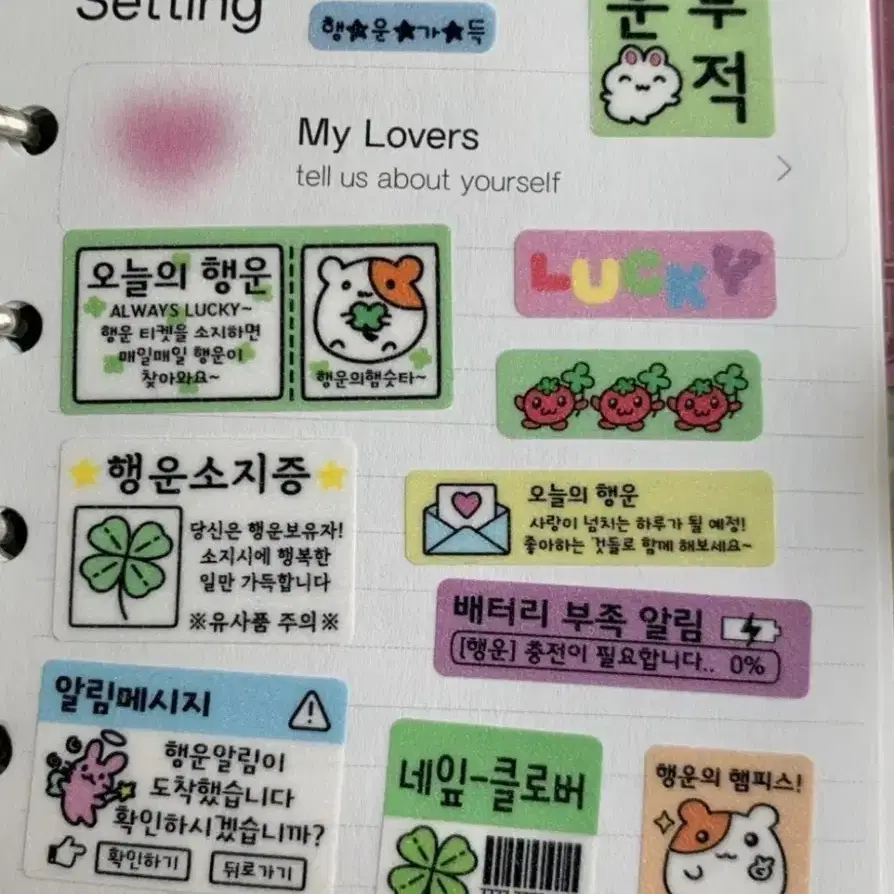 Setting
행★운★가★득
운부
적
My Lovers
tell us about yourself
오늘의 행운
ALWAYS LUCKY~
행운 티켓을 소지하면
매일매일 행운이
찾아와요~
행운의햄슷타~
LUCKY
행운소지증
당신은 행운보유자!
소지시에 행복한
일만 가득합니다
※유사품 주의※
오늘의 행운
사랑이 넘치는 하루가 될 예정!
좋아하는 것들로 함께 해보세요~
배터리 부족 알림
[행운] 충전이 필요합니다.. 0%
알림메시지
행운알림이
도착했습니다
확인하시겠습니까?
확인하기
뒤로가기
네잎-클로버
행운의 햄피스!